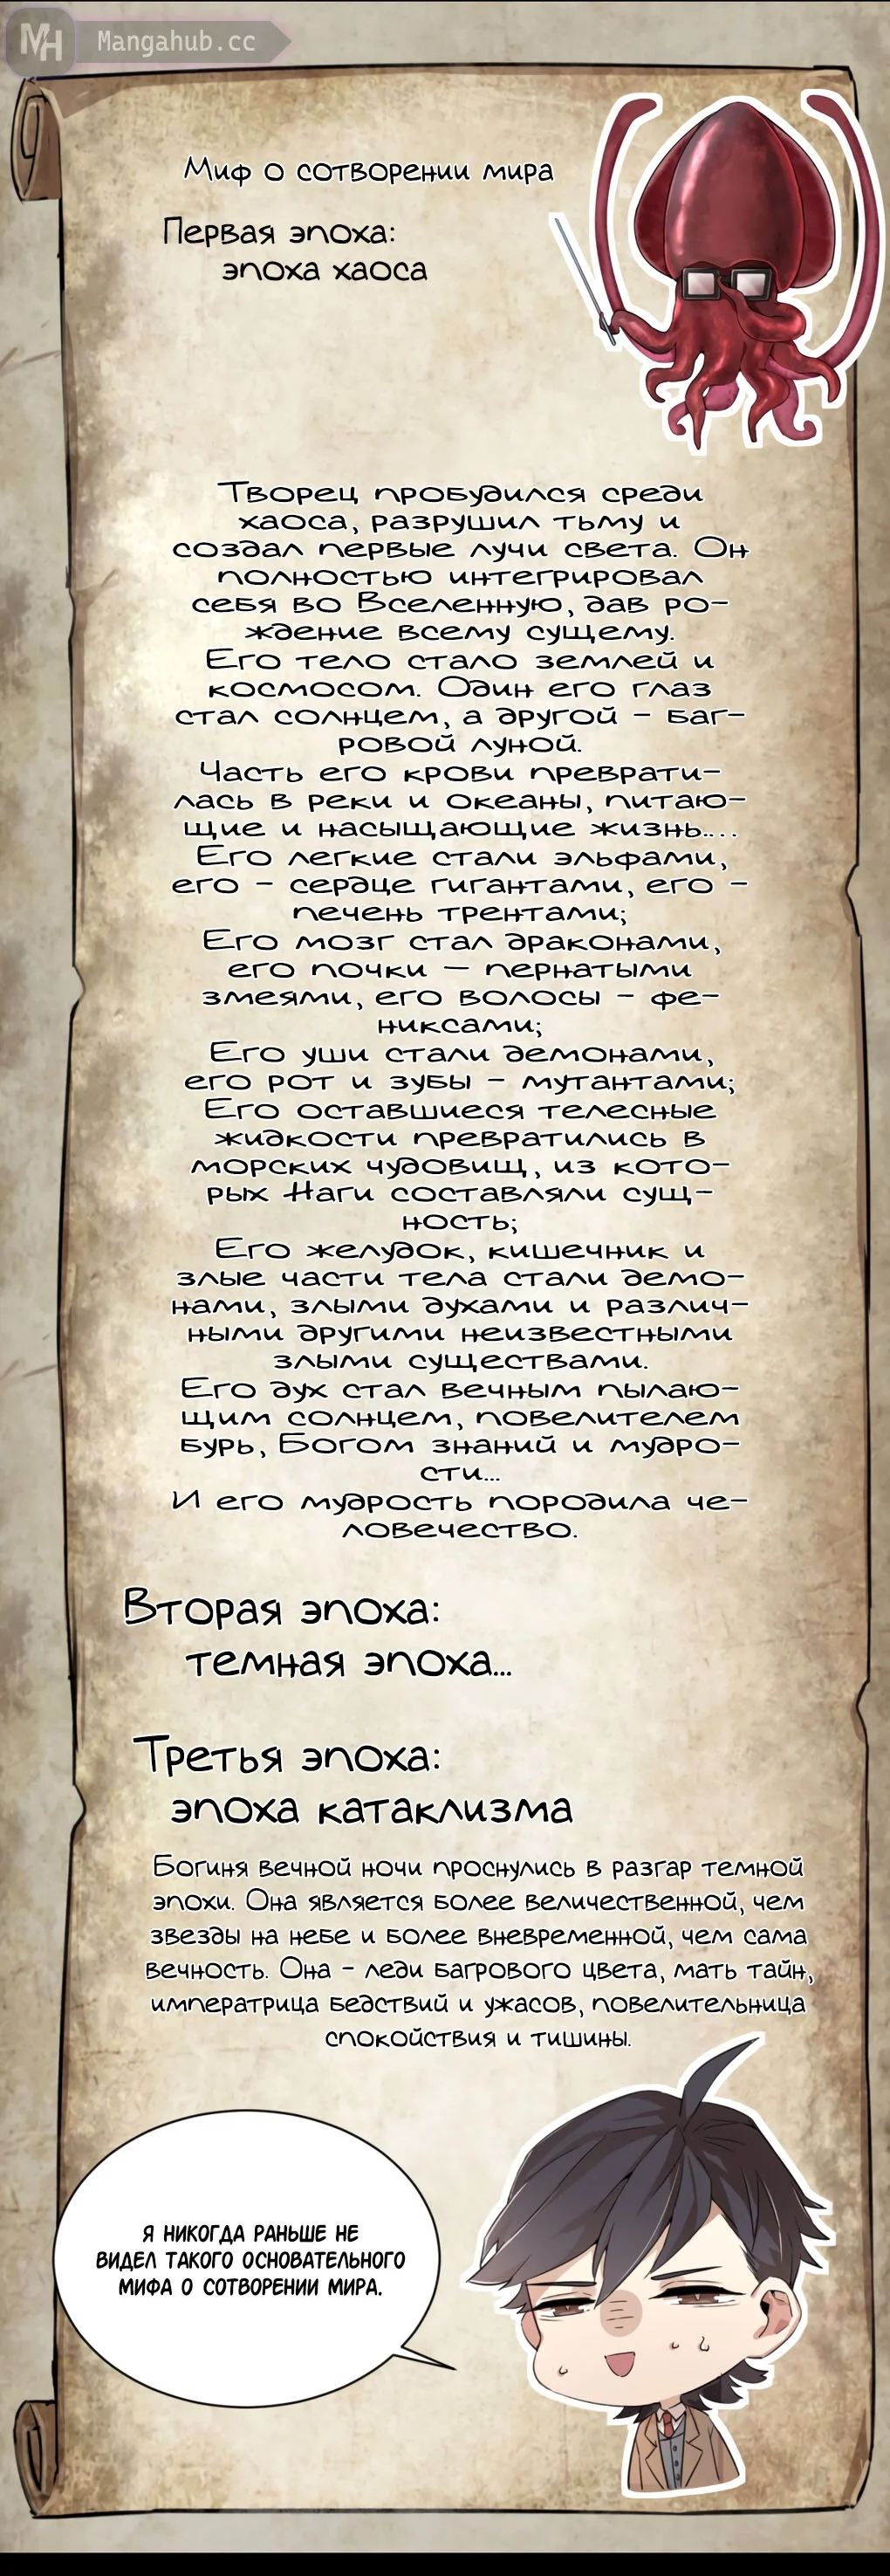 MH Mangahub.cc
Миф о сотворении мира
Первая эпоха:
эпоха хаоса
Творец пробудился среди
хаоса, разрушил тьму и
создал первые лучи света. Он
полностью интегрировал
себя во Вселенную, дав ро-
ждение всему сущему.
Его тело стало землей и
космосом. Один его глаз
стал солнцем, а другой - баг-
ровой луной.
Часть его крови преврати-
лась в реки и океаны, питаю-
щие и насыщающие жизнь....
Его легкие стали эльфами,
его - сердце гигантами, его -
печень трентами;
Его мозг стал драконами,
его почки — пернатыми
змеями, его волосы - фе-
никсами;
Его уши стали демонами,
его рот и зубы - мутантами;
Его оставшиеся телесные
жидкости превратились в
морских чудовищ, из кото-
рых Наги составляли сущ-
ность;
Его желудок, кишечник и
злые части тела стали демо-
нами, злыми духами и различ-
ными другими неизвестными
злыми существами.
Его дух стал вечным пылаю-
щим солнцем, повелителем
бурь, Богом знаний и мудро-
сти...
И его мудрость породила че-
ловечество.
Вторая эпоха:
темная эпоха...
Третья эпоха:
эпоха катаклизма
Богиня вечной ночи проснулись в разгар темной
эпохи. Она является более величественной, чем
звезды на небе и более вневременной, чем сама
вечность. Она - леди багрового цвета, мать тайн,
императрица бедствий и ужасов, повелительница
спокойствия и тишины.
Я НИКОГДА РАНЬШЕ НЕ
ВИДЕЛ ТАКОГО ОСНОВАТЕЛЬНОГО
МИФА О СОТВОРЕНИИ МИРА.